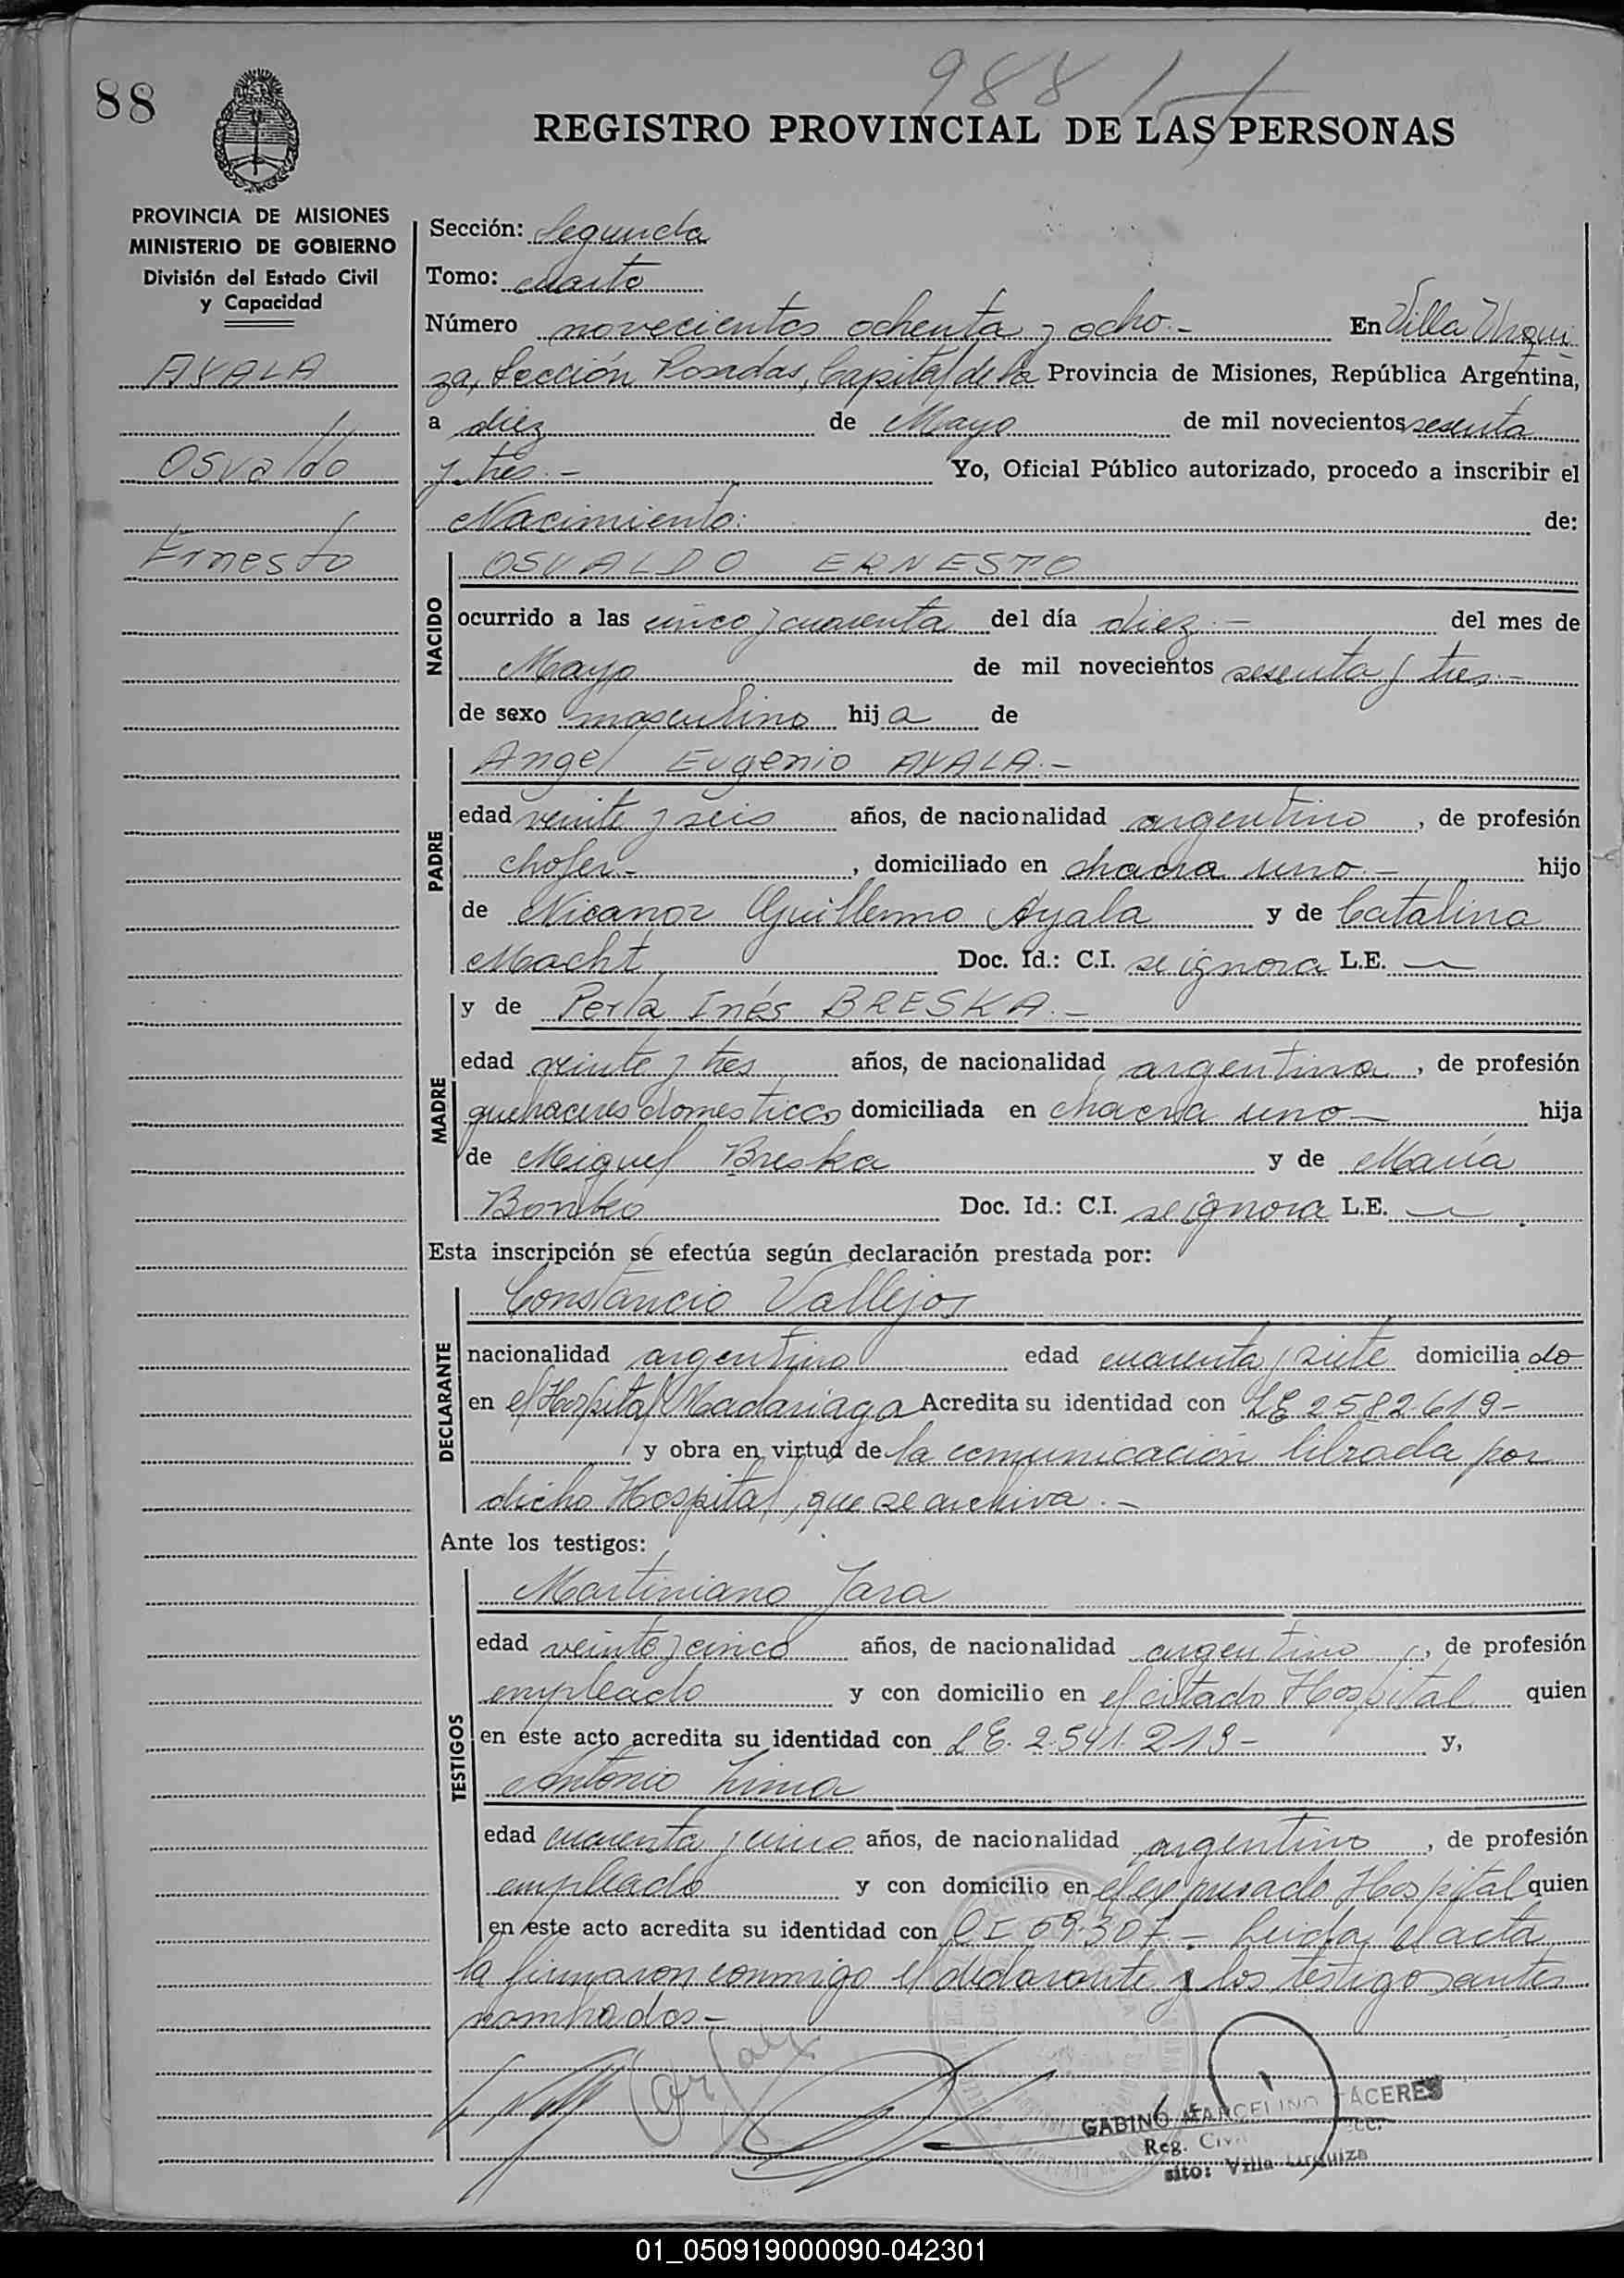 88
988
REGISTRO PROVINCIAL DE LAS PERSONAS
PROVINCIA DE MISIONES
MINISTERIO DE GOBIERNO
División del Estado Civil
y Capacidad
AYALA
Osvaldo
Ernesto
Sección: Segunda
Tomo: cuarto
Número novecientos ochenta y ocho.- En Villa Urqui
za, Sección Posadas, Capital de la Provincia de Misiones, República Argentina,
a diez de Mayo de mil novecientos sesenta
y tres.- Yo, Oficial Público autorizado, procedo a inscribir el
Nacimiento: de:
NACIDO
OSVALDO ERNESTO
ocurrido a las cinco y cuarenta del día diez.- del mes de
Mayo de mil novecientos sesenta y tres.-
de sexo masculino hija de
PADRE
Angel Eugenio AYALA.-
edad veinte y seis años, de nacionalidad argentino, de profesión
chofer-, domiciliado en chacra uno.- hijo
de Nicanor Guillermo Ayala y de Catalina
Macht Doc. Id.: C.I. se ignora L.E. —
MADRE
y de Perla Inés BRESKA.-
edad veinte y tres años, de nacionalidad argentina, de profesión
quehaceres domesticos domiciliada en chacra uno- hija
de Miguel Breska y de María
Bonko Doc. Id.: C.I. se ignora L.E. —
Esta inscripción se efectúa según declaración prestada por:
DECLARANTE
Constancio Vallejos
nacionalidad argentino edad cuarenta y siete domiciliado
en el Hospital Madariaga Acredita su identidad con LE 2582.619-
y obra en virtud de la comunicación librada por
dicho Hospital, que se archiva.-
Ante los testigos:
TESTIGOS
Martiniano Jara
edad veinte y cinco años, de nacionalidad argentino, de profesión
empleado y con domicilio en el citado Hospital quien
en este acto acredita su identidad con LE. 2.541.219- y,
Antonio Lima
edad cuarenta y cinco años, de nacionalidad argentino, de profesión
empleado y con domicilio en el expresado Hospital quien
en este acto acredita su identidad con CI 69.307.- Leida el acta
la firmaron conmigo el declarante y los testigos antes
nombrados-
GABINO MARCELINO CACERES
Reg. Civil
sito: Villa Urquiza
01_050919000090-042301